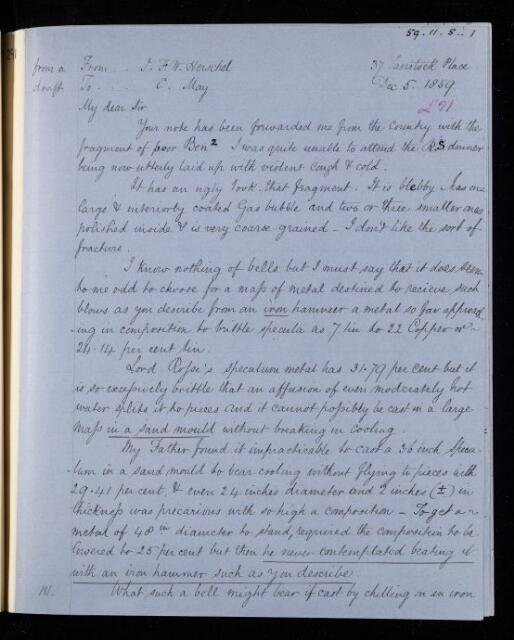 59.11.5..1
from a From .. J. F. W. Herschel 37 Tavistock Place
draft To ... C. May Dec 5. 1859
L 91
My dear Sir
Your note has been forwarded me from the Country with the
fragment of poor Ben 2 I was quite unable to attend the R.S. dinner
being now utterly laid up with violent cough & cold.
It has an ugly look that fragment. It is blebby. Has one
large & interiorly coated Gas bubble and two or three smaller ones
polished inside & is very coarse grained – I don't like the sort of
fracture.
I know nothing of bells but I must say that it does seem
to me odd to choose for a mass of metal destined to recieve such
blows as you describe from an iron hammer a metal so far approach
-ing in composition to brittle specula as 7 tin to 22 Copper or
24.14 per cent tin.
Lord Rosse's speculum metal has 31.79 per cent but it
is so excessively brittle that an affusion of even moderately hot
water splits it to pieces and it cannot possibly be cast in a large
mass in a sand mould without breaking in cooling.
My Father found it impracticable to cast a 36 inch specu-
-lum in a sand mould to bear cooling without flying to pieces with
29.41 per cent. & even 24 inches diameter and 2 inches (±) in
thickness was precarious with so high a composition – To get a
metal of 48 in diameter to stand, required the composition to be
lowered to 25 per cent but then he never contemplated beating it
with an iron hammer such as you describe.
What such a bell might bear if cast by chilling on an iron